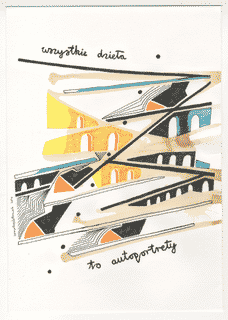 wszystkie dzieła
to autoportrety